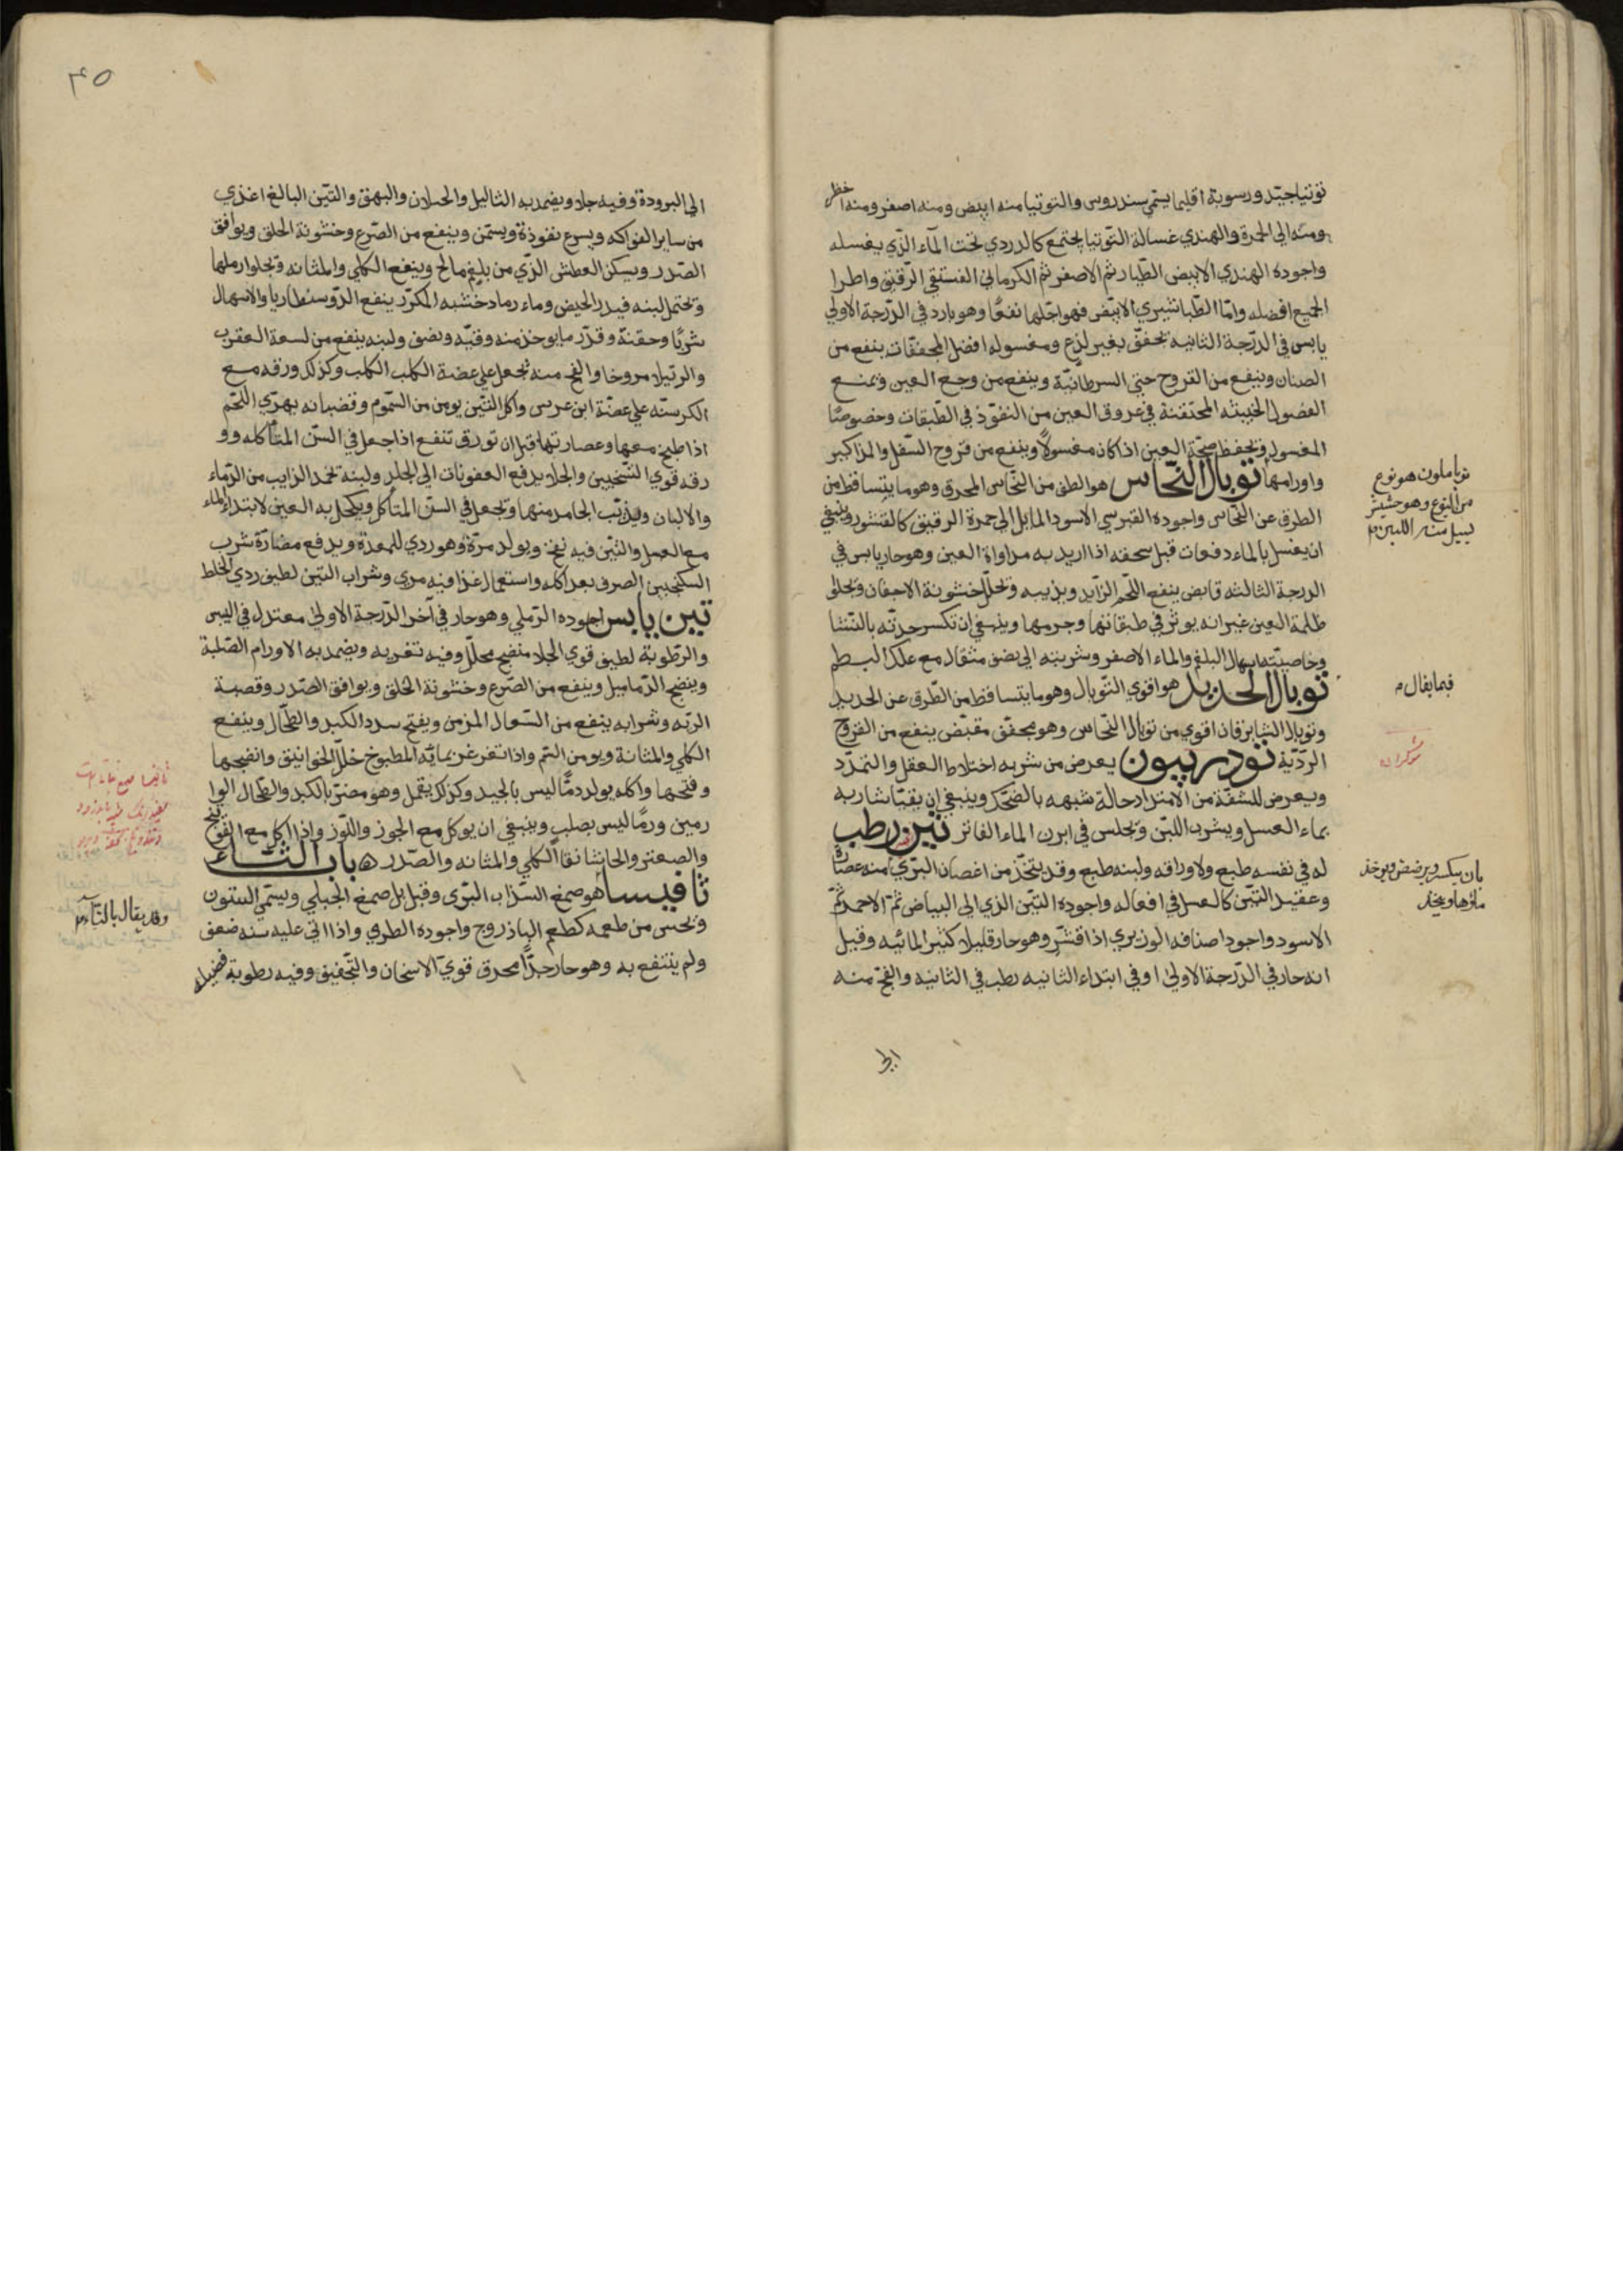 توتيا جيد ورسوبة اقليما يسمي سندروس والتوتيا منه ابيض ومنه اصفر ومنه اخضر
ومنه الى الحمرة والهندي غسالة التوتيا يجتمع كالدردي تحت الماء الذي يغسله
واجوده الهندي الابيض الطيار ثم الاصفر ثم الكرماني الفستقي الرقيق واطرا
الجميع افضله واما الطباشيري الابيض فهو اجلها نفعا وهو بارد في الدرجة الاولي
يابس في الدرجة الثانيه يجفف بغير لذع ومغسوله افضل المجففات ينفع من
الصنان وينفع من القروح حتي السرطانية وينفع من وجع العين ويمنع
الفضول الخبيثه المحتقنة في عروق العين من النفوذ في الطبقات وخصوصا
المغسول ويحفظ صحة العين اذا كان مغسولا وينفع من قروح السفل والمذاكير
واورامها توبال النحاس هو الطف من النحاس المحرق وهو ما يتساقط من
الطرق عن النحاس واجوده القبرسي الاسود المايل الى حمرة الرقيق كالقشور وينبغي
ان يغسل بالماء دفعات قبل سحقه اذا اريد به مداواة العين وهو حار يابس في
الدرجة الثالثه قابض ينفع اللحم الزايد ويذيبه ويحلل خشونة الاجفان ويجلو
ظلمة العين غير انه يوثر في طبقاتها وجرمها وينبغي ان تكسر حدته بالنشا
وخاصيته اسهال البلغم والماء الاصفر وشربته الى نصف مثقال مع علك البطم
توبال الحديد هو اقوي التوبال وهو ما يتساقط من الطرق عن الحديد
وتوبال الشابرقان اقوي من توبال النحاس وهو مجفف مقبض ينفع من القروح
الردية تودرييون يعرض من شربه اختلاط العقل والتمدد
ويعرض للشفة من الامتداد حالة شبيهه بالضحك وينبغي ان يقيا شاربه
بماء العسل ويشرب اللبن ويجلس في ابزن الماء الفاتر تين رطب
له في نفسه طبع ولاوراقه ولبنه طبع وقد يتخذ من اغصان البري منه عصارة
وعقيد التين كالعسل في افعاله واجوده التين الذي الى البياض ثم الاحمر ثم
الاسود واجود اصنافه الوزيري اذا قشر وهو حار قليلا كثير المائيه وقيل
انه حار في الدرجة الاولى او في ابتداء الثانيه رطب في الثانيه والفج منه
الى
توباملون هو نوع
من اليتوع وهو حشيش
يسيل منه اللبن
فيما يقال
شوكران
بان يكسر ويرضض ويوخذ
ماؤها ويخثر
٤٥
الى البرودة وفيه جلا ويضمد به الثاليل والخيلان والبهق والتين البالغ اغذي
من ساير الفواكه ويسرع نفوذه ويسمن وينفع من الصرع وخشونة الحلق ويوافق
الصدر ويسكن العطش الذي من بلغم مالح وينفع الكلي والمثانه ويجلوا رملها
ويحتمل لبنه فيدر الحيض وماء رماد خشبه المكرر ينفع الدوسنطاريا والاسهال
شربا وحقنة وقدر ما يوخذ منه وقيه ونصف ولبنه ينفع من لسعة العقرب
والرتيلا مروخا والفج منه يجعل علي عضة الكلب الكلب وكذلك ورقه مع
الكرسنه علي عضة ابن عرس واكل التين يومن من السموم وقضبانه يهري اللحم
اذا طبخ معها وعصارتها قبل ان تورق تنفع اذا جعل في السن المتاكله وو
رقه قوي التسخين والجلا يدفع العفونات الى الجلد ولبنه يجمد الذايب من الدماء
والالبان ويذيب الجامد منها ويجعل في السن المتاكل ويكحل به العين لابتداء الماء
مع العسل والتين فيه نفخ ويولد مرة وهو ردي للمعدة ويدفع مضارة شرب
السكنجبين الصرف بعد اكله واستعمال غذا فيه مري وشراب التين لطيف ردي الخلط
تين يابس اجوده الرملي وهو حار في آخر الدرجة الاولى معتدل في اليبس
والرطوبة لطيف قوي الجلا منضج محلل وفيه تغريه ويضمد به الاورام الصلبة
وينضج الدماميل وينفع من الصرع وخشونة الحلق ويوافق الصدر وقصبة
الريه وشرابه ينفع من السعال المزمن ويفتح سدد الكبد والطحال وينفع
الكلي والمثانة ويومن السم واذا تغرغر بمائه المطبوخ حلل الخوانيق وانضجها
وفتحها واكله يولد دما ليس بالجيد وكذلك يقمل وهو مضر بالكبد والطحال الوا
رمين ورما ليس بصلب وينبغي ان يوكل مع الجوز واللوز واذا اكل مع الفوتنج
والصعتر والحاشا نقا الكلي والمثانه والصدر ه باب الثاء
ثافيسا هو صمغ السذاب البري وقيل بل صمغ الجبلي ويسمي الينتون
ويحس من طعمه كطعم الباذروج واجوده الطري واذا اتي عليه سنه ضعف
ولم ينتفع به وهو حار جدا محرق قوي الاسخان والتجفيف وفيه رطوبة فضليه
وقد يقال بالتاء